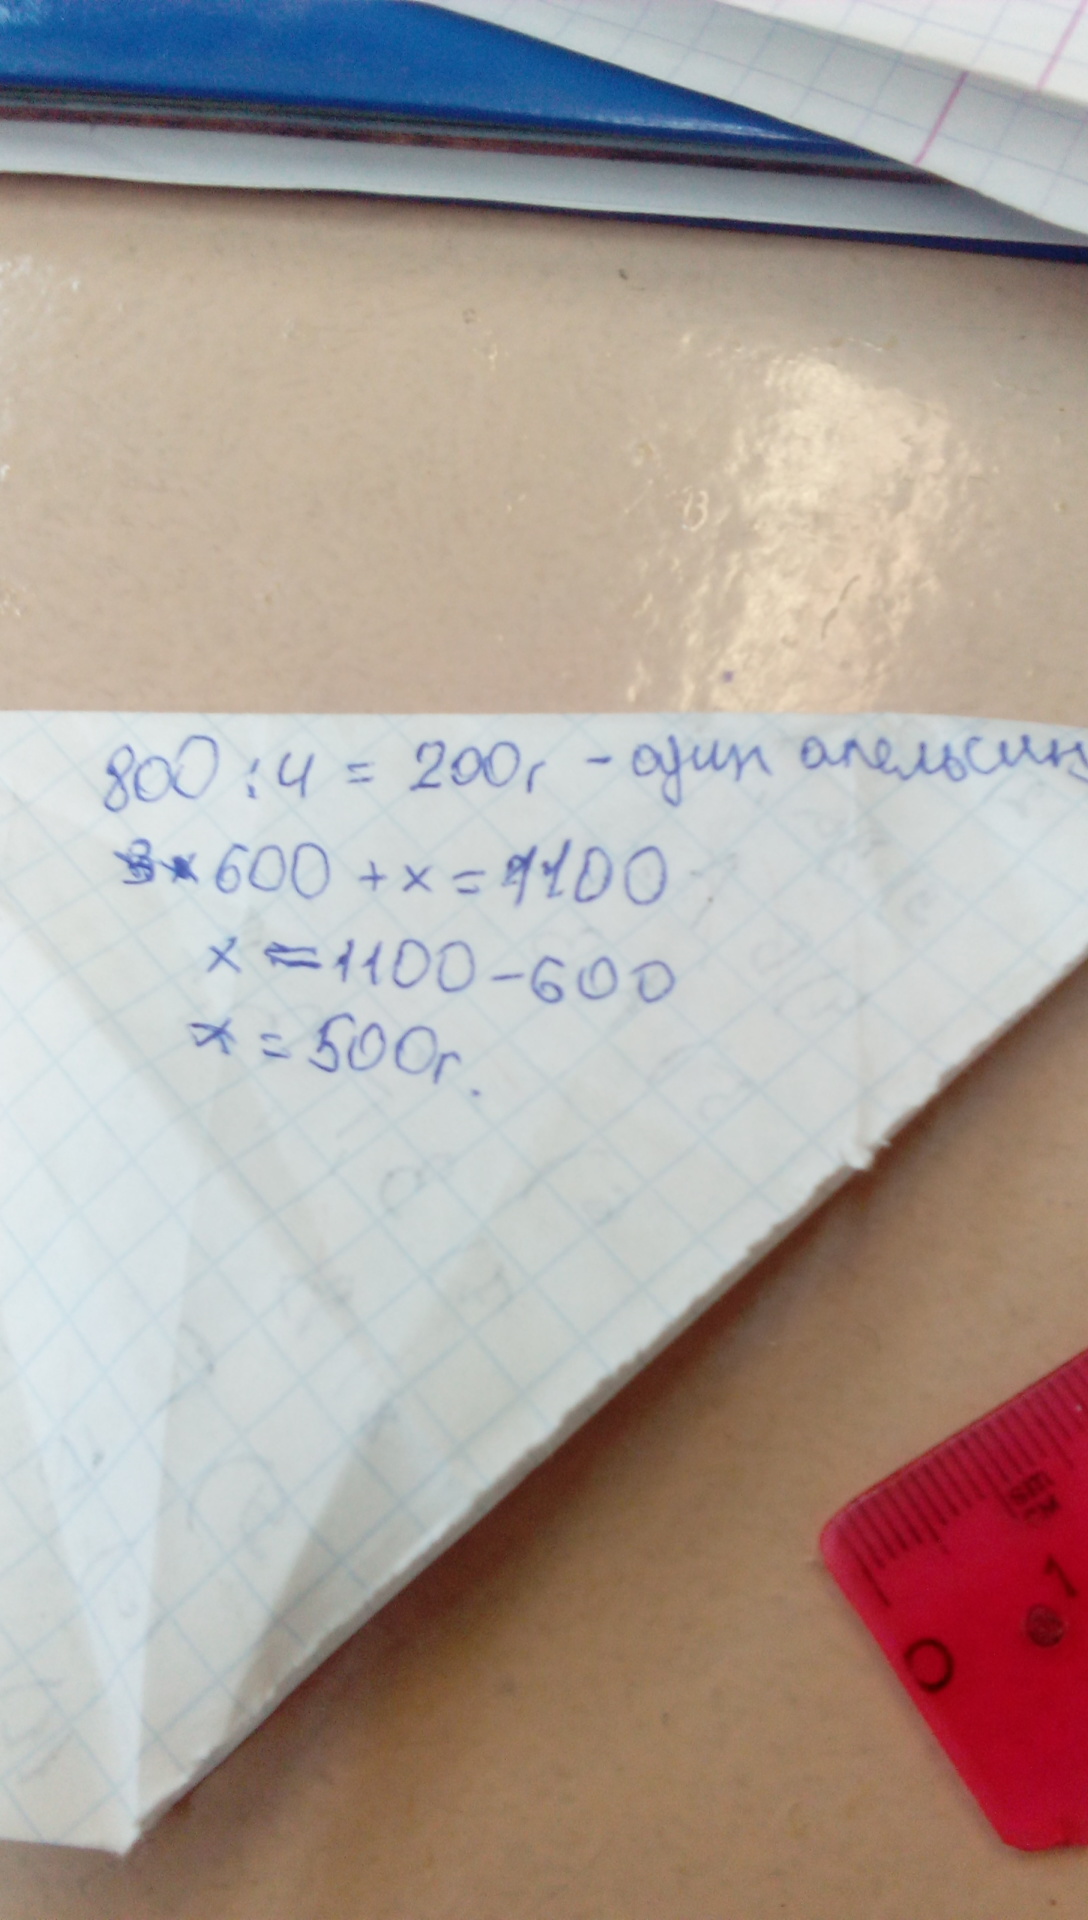 800 : 4 = 200г - один апельсин
600 + x = 1100
x = 1100 - 600
x = 500г.
0 1